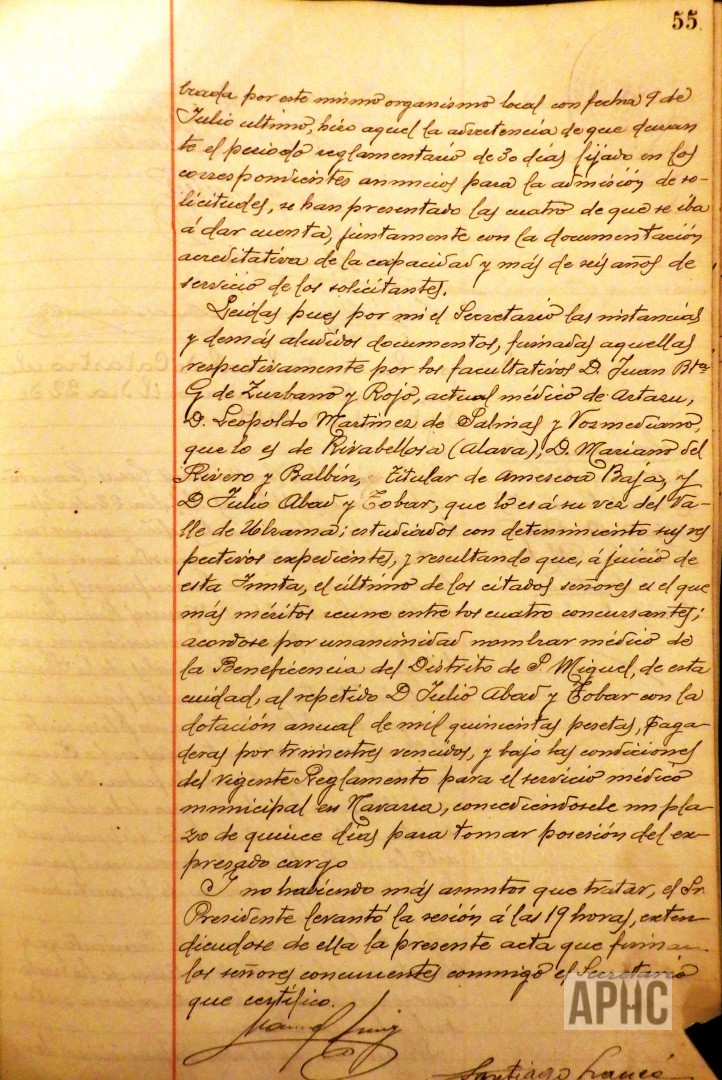 55
brada por este mismo organismo local con fecha 9 de
Julio ultimo, hizo aquel la advertencia de que duran
te el periodo reglamentario de 30 dias fijado en los
correspondientes anuncios para la admisión de so-
licitudes, se han presentado las cuatro de que se iba
á dar cuenta, juntamente con la documentación
acreditativa de la capacidad y más de seis años de
servicio de los solicitantes.
Leidas pues por mi el Secretario las instancias
y demás aludidos documentos, firmadas aquellas
respectivamente por los facultativos D. Juan Bta
G de Zurbano y Rojo, actual médico de Artazu,
D. Leopoldo Martinez de Salinas y Vozmediano,
que lo es de Rivabellosa (Alava); D. Mariano del
Rivero y Balbín, titular de Amescoa Baja, y
D Julio Abad y Tobar, que lo es á su vez del Va-
lle de Ulzama; estudiados con detenimiento sus res
pectivos expedientes, y resultando que, á juicio de
esta Junta, el último de los citados señores es el que
más méritos reune entre los cuatro concursantes;
acordose por unanimidad nombrar médico de
la Beneficencia del Distrito de S. Miguel, de esta
cuidad, al repetido D Julio Abad y Tobar con la
dotación anual de mil quinientas pesetas, paga
deras por trimestres vencidos, y bajo las condiciones
del vigente Reglamento para el servicio médico
municipal en Navarra, concediendosele un pla-
zo de quince dias para tomar posesión del ex-
presado cargo
Y no habiendo más asuntos que tratar, el Sr.
Presidente levantó la sesión á las 19 horas, exten-
diendose de ella la presente acta que firman
los señores concurrentes conmigo el Secretario
que certifico.
Santiago
APHC